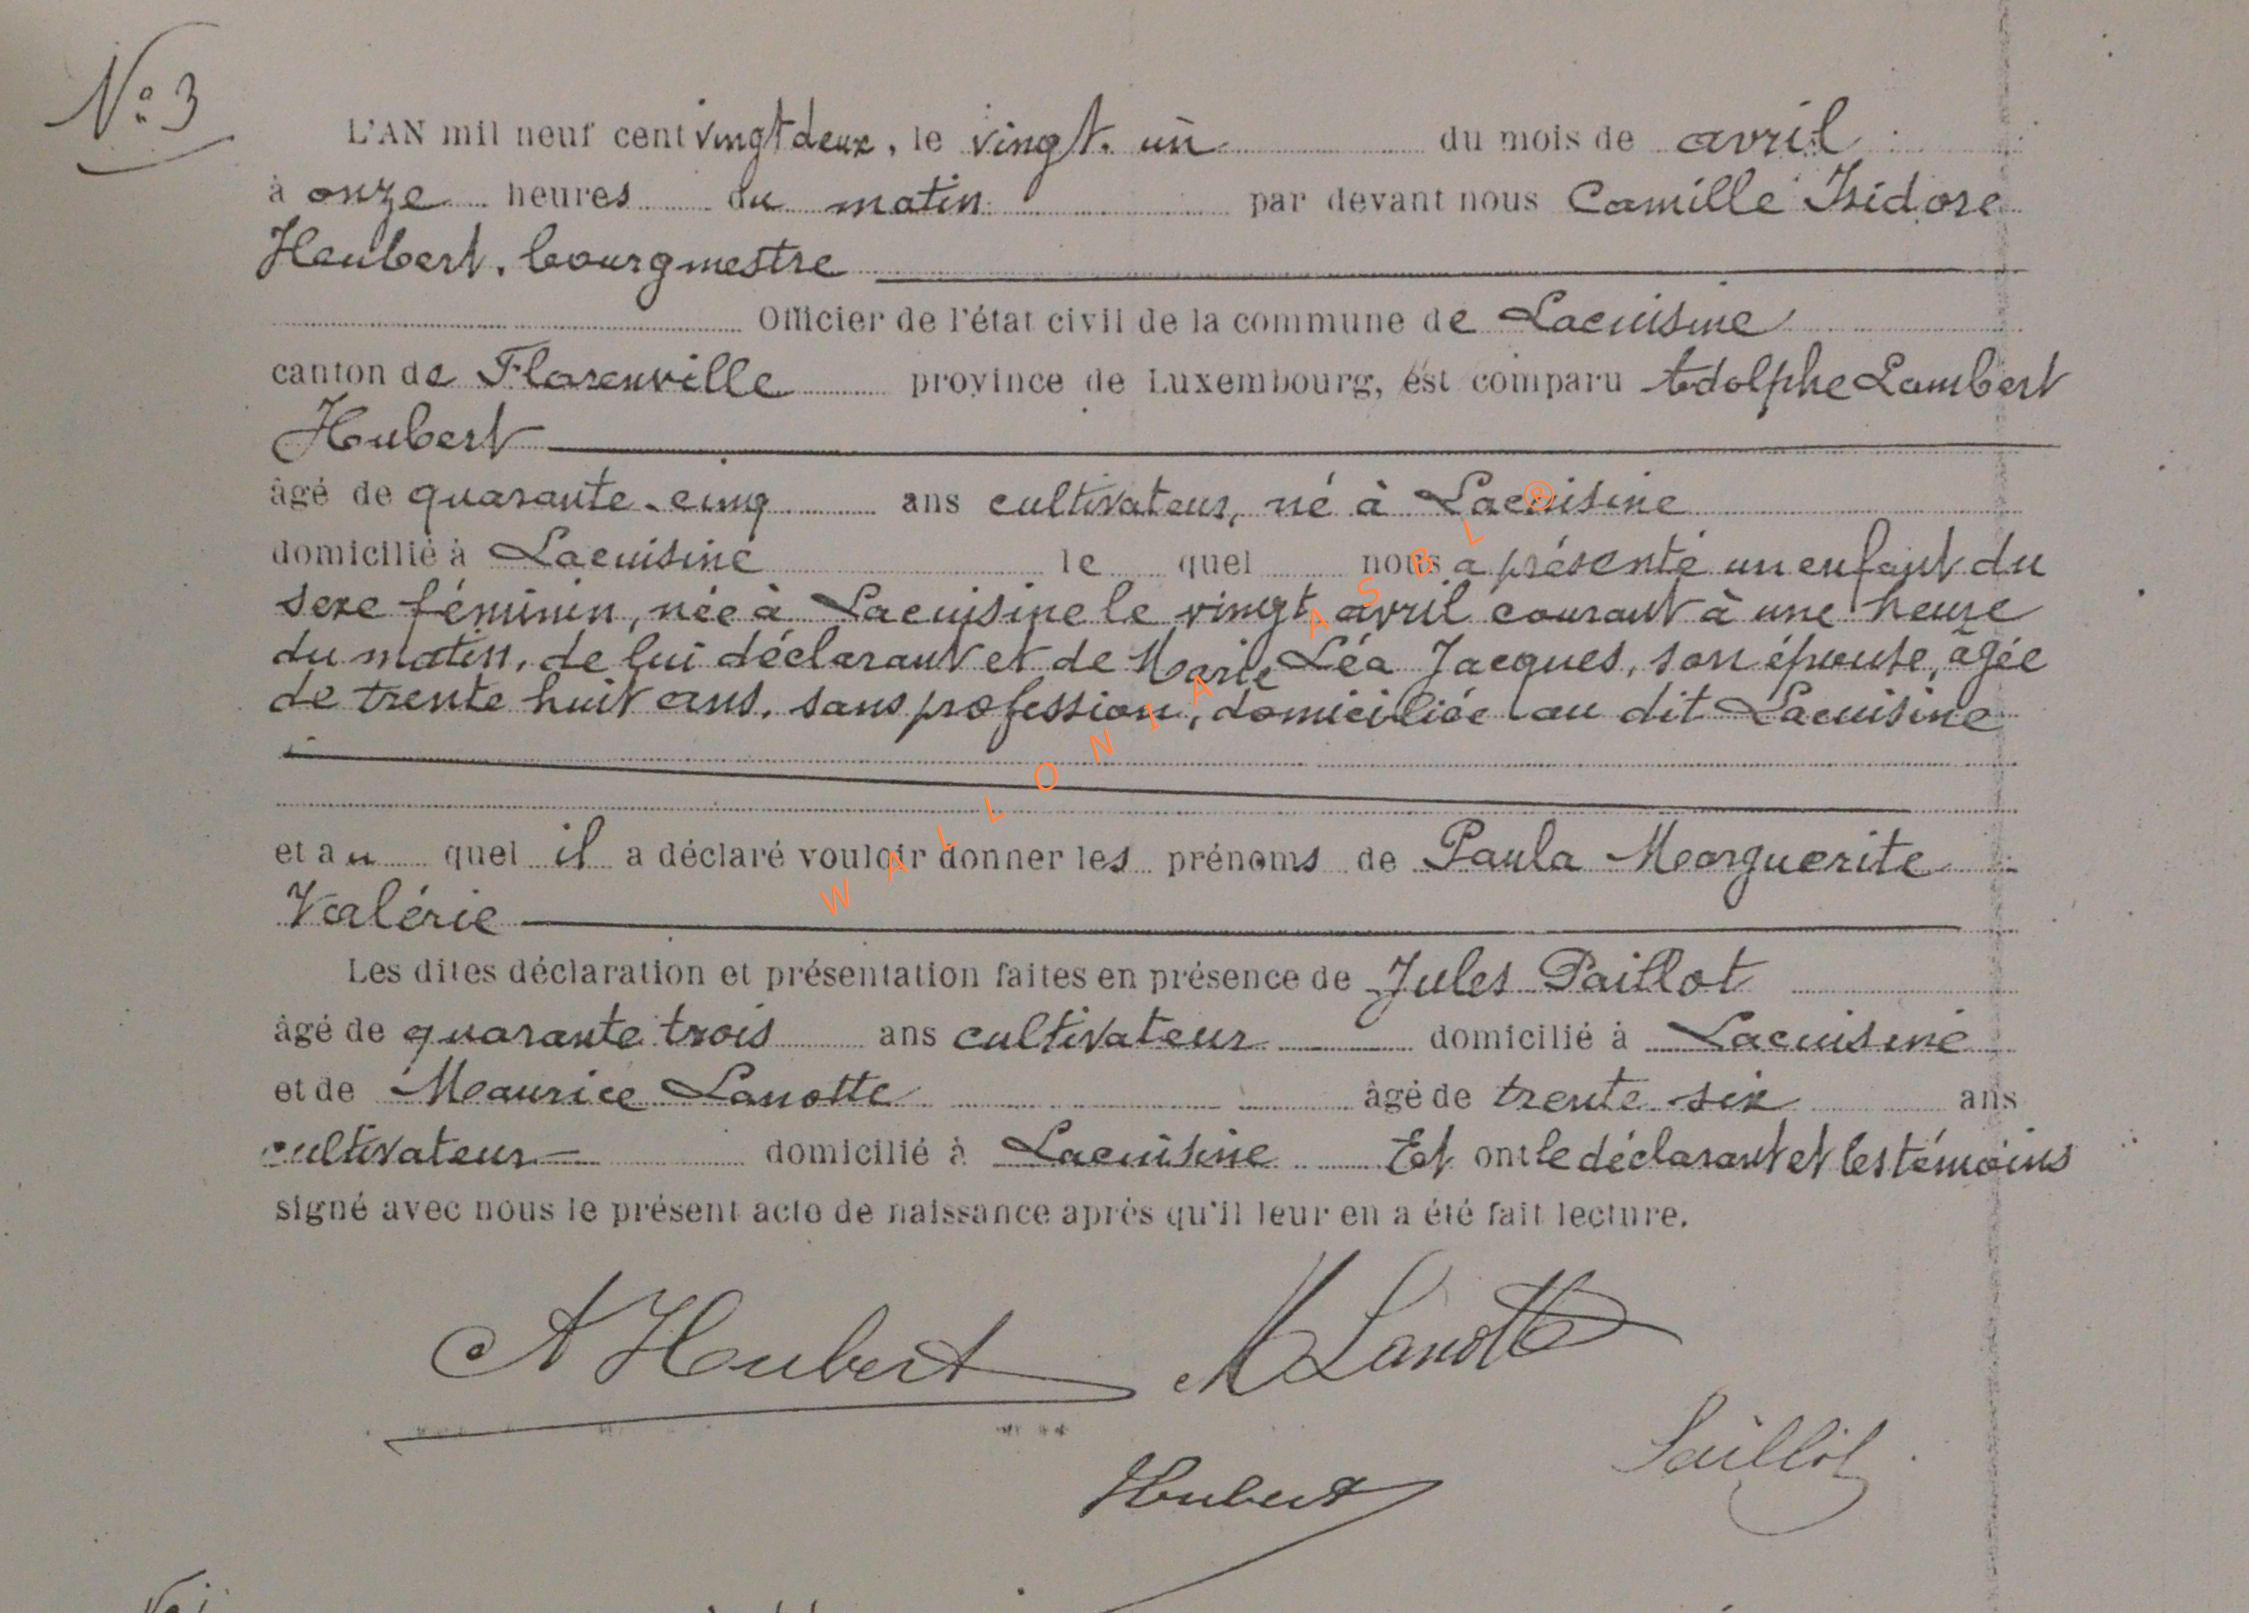 N° 3
L'AN mil neuf cent vingt deux, le vingt-un du mois de avril
à onze heures du matin par devant nous Camille Isidore
Houbert, bourgmestre
Officier de l'état civil de la commune de Lacuisine
canton de Florenville province de Luxembourg, est comparu Adolphe Lambert
Houbert
âgé de quarante-cinq ans cultivateur, né à Lacuisine
domicilié à Lacuisine le quel nous a présenté un enfant du
sexe féminin, née à Lacuisine le vingt avril courant à une heure
du matin, de lui déclarant et de Marie Léa Jacques, son épouse, âgée
de trente huit ans, sans profession, domiciliée au dit Lacuisine
et au quel il a déclaré vouloir donner les prénoms de Paula Marguerite
Valérie
Les dites déclaration et présentation faites en présence de Jules Paillot
âgé de quarante trois ans cultivateur domicilié à Lacuisine
et de Maurice Lanotte âgé de trente six ans
cultivateur domicilié à Lacuisine Et ont le déclarant et les témoins
signé avec nous le présent acte de naissance après qu'il leur en a été fait lecture.
A Houbert M Lanotte
Paillot
Houbert
WALLONIA ASBL ®